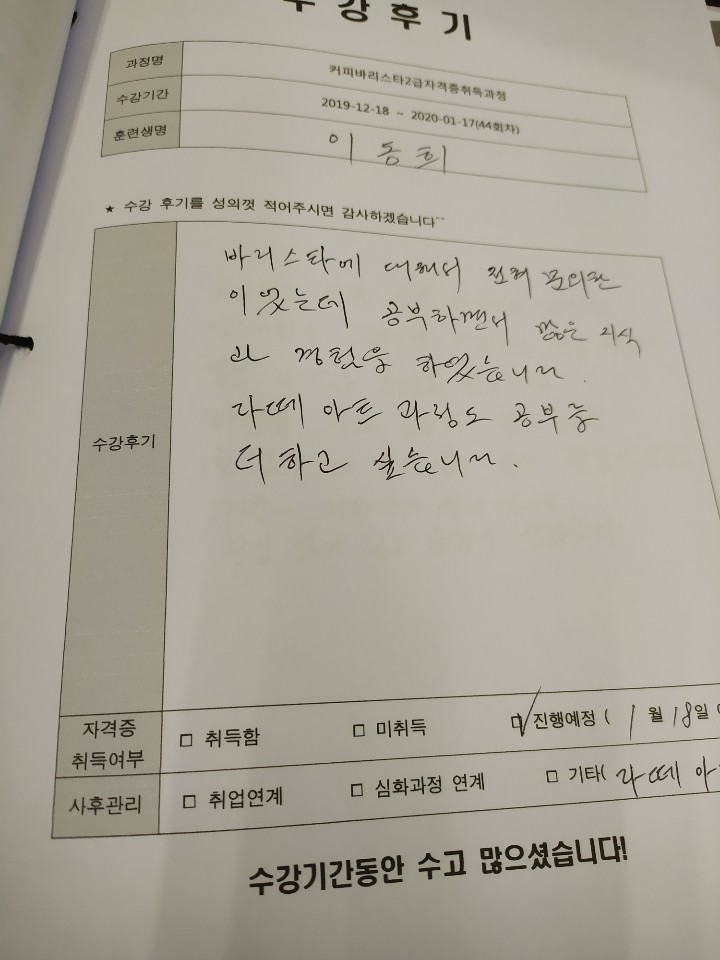 수강후기
과정명 커피바리스타2급자격증취득과정
수강기간 2019-12-18 ~ 2020-01-17(44회차)
훈련생명 이동희
★ 수강 후기를 성의껏 적어주시면 감사하겠습니다^^
수강후기
바리스타에 대해서 전혀 문외한
이었는데 공부하면서 많은 지식
과 경험을 하였습니다.
라떼 아트 과정도 공부를
더 하고 싶습니다.
자격증 취득여부 □ 취득함 □ 미취득 □ 진행예정 ( 1월 18일
사후관리 □ 취업연계 □ 심화과정 연계 □ 기타( 라떼 아
수강기간동안 수고 많으셨습니다!